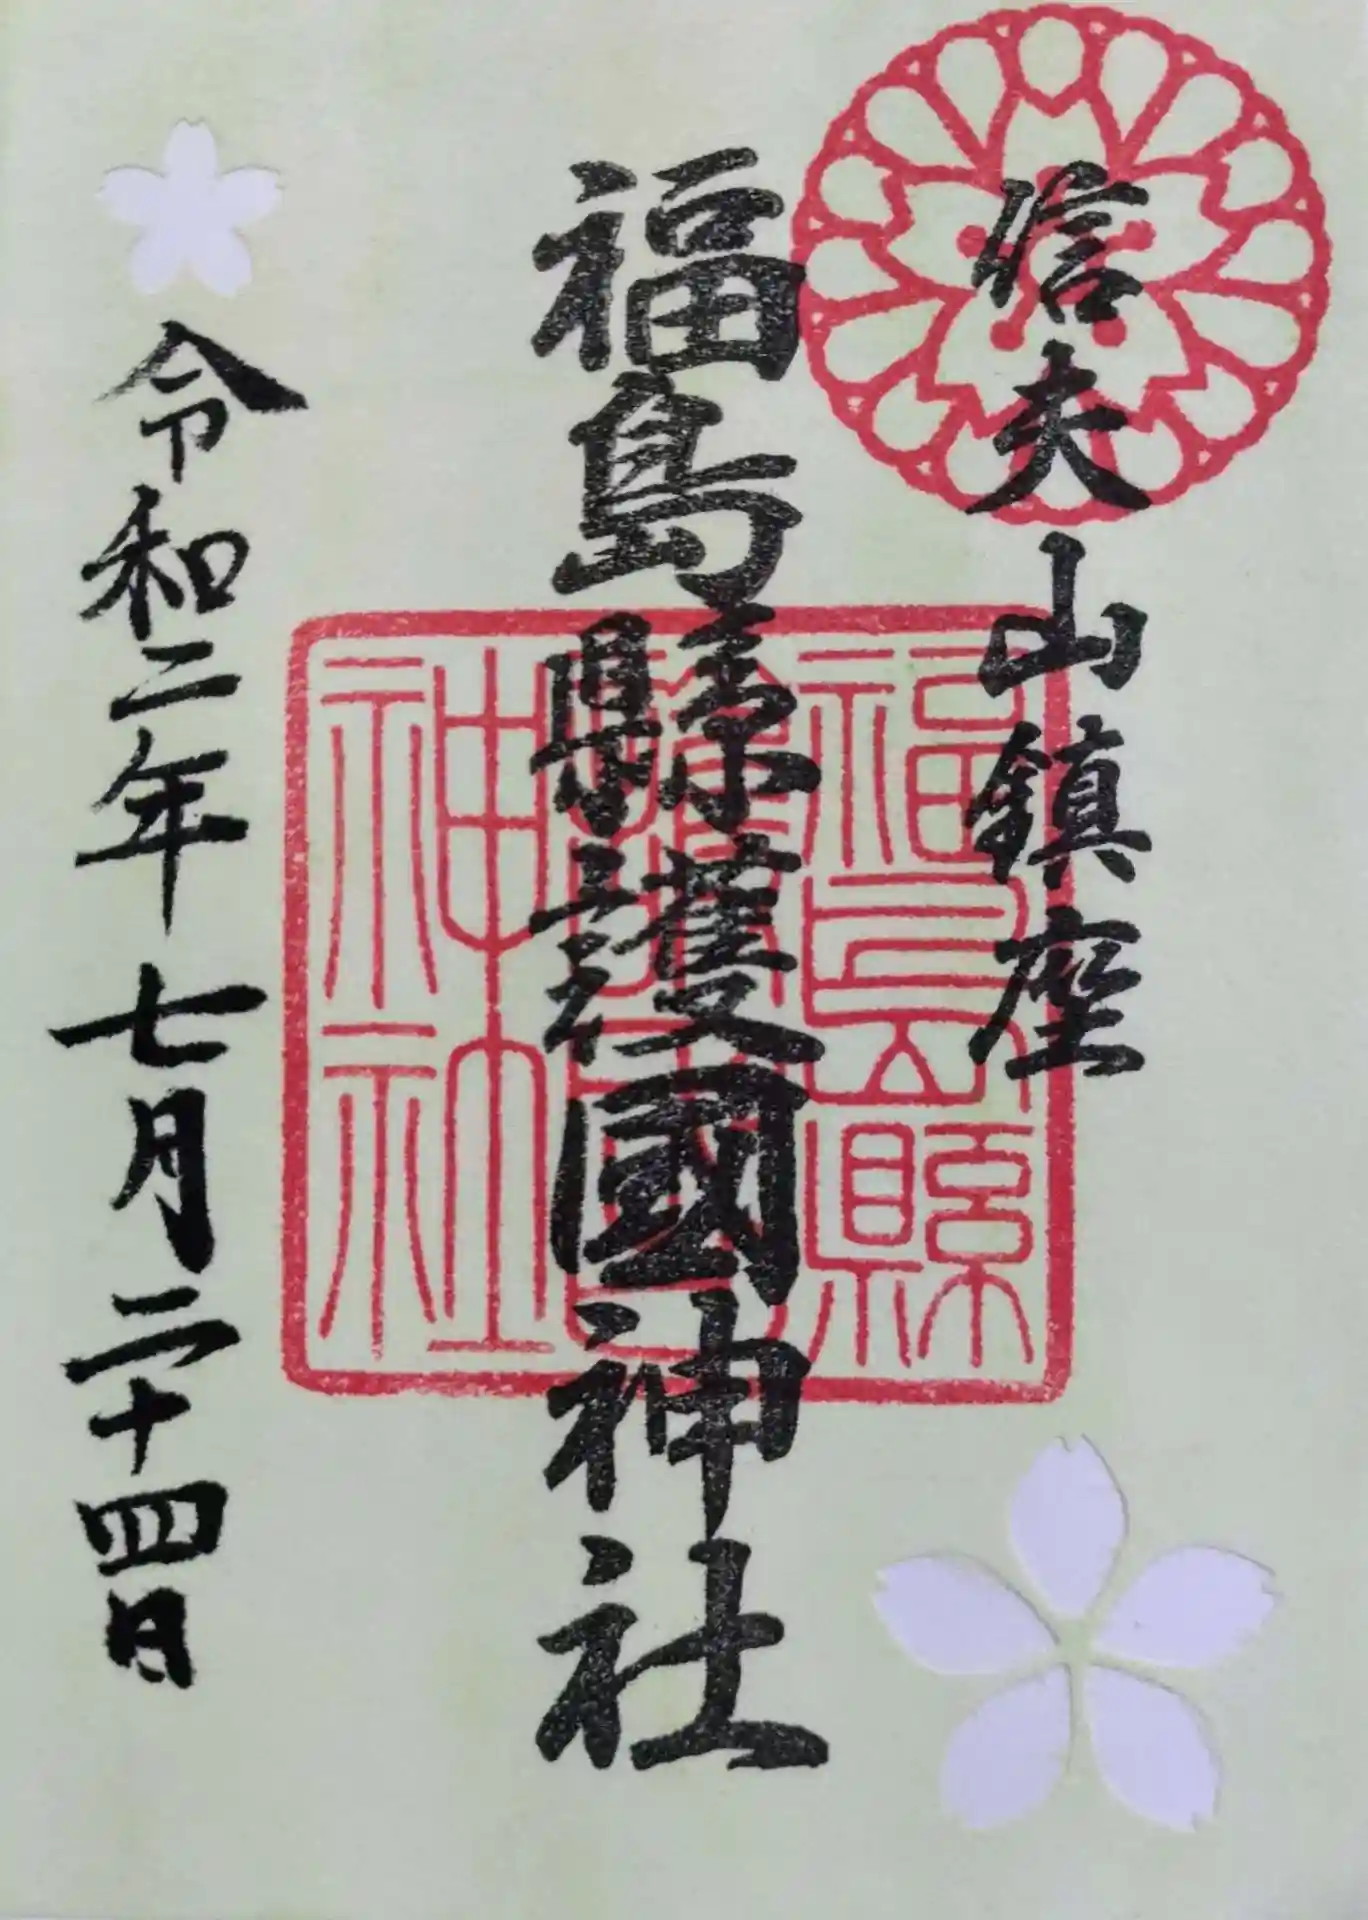 信夫山鎮座
福島縣護國神社
福島縣護國神社
令和二年七月二十四日